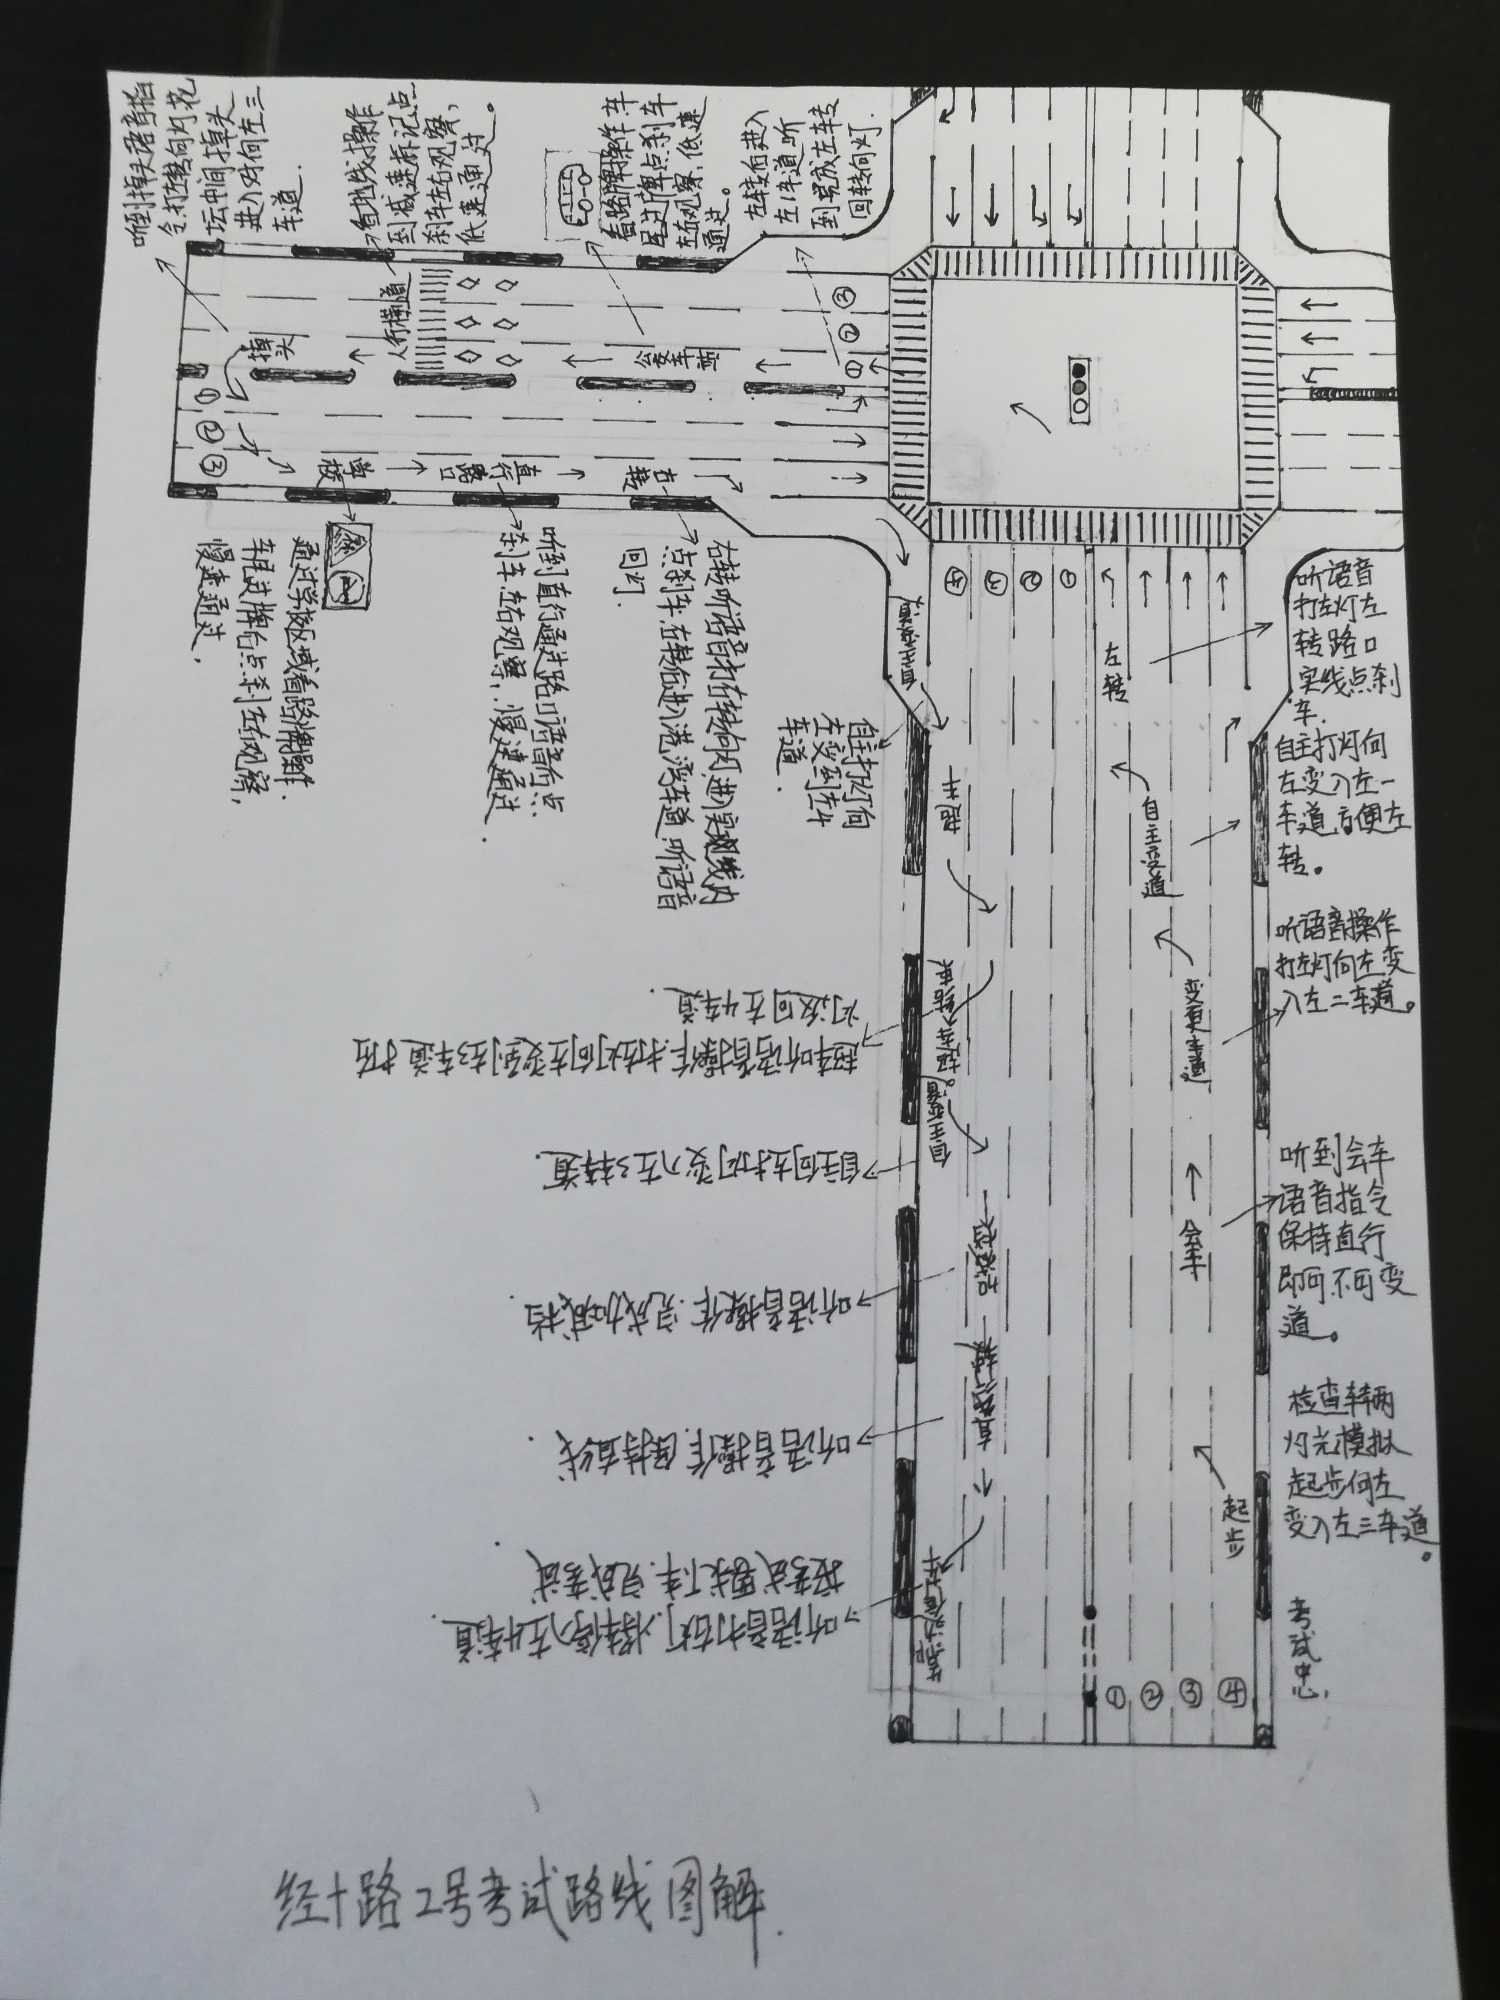 听到掉头语音指
令.打左转向灯花
坛中间掉头
进入对向左三
车道.
看地线操作
到减速标记点
刹车左右观察,
低速通过。
看路牌操作.车
尾过牌点刹车
左右观察,低速
通过。
左转后进入
左1车道,听
到完成左转
回转向灯.
掉头
人行横道
公交车站
①
②
③
①
②
③
学校
直行
路口
右转
通过学校区域看路牌操作.
车尾过牌后点刹左右观察,
慢速通过,
听到直行通过路口语音后点
刹车左右观察,慢速通过.
右转听语音打右转向灯,进入实线内
点刹车.右转后进入港湾车道,听语音
回灯.
自主变道
自主打灯向
左变到左4
车道.
④
③
②
①
超车
超车听语音操作.打左灯向左变到左3车道打右
灯返回左4车道.
自主变道
自主向左打灯变入左3车道.
听语音操作.完成加减档.
直线行驶
听语音操作.保持直线.
靠边停车
听语音打右灯.将车停入左4车道.
按考试要求下车.完成考试.
左转
听语音
打左灯左
转路口
实线点刹
车.
自主变道
自主打灯向
左变入左一
车道,方便左
转。
变更车道
听语音操作
打左灯向左变
入左二车道。
会车
听到会车
语音指令
保持直行
即可.不可变
道。
起步
检查车辆
灯光模拟
起步向左
变入左三车道。
考试中心,
①
②
③
④
经十路2号考试路线图解.